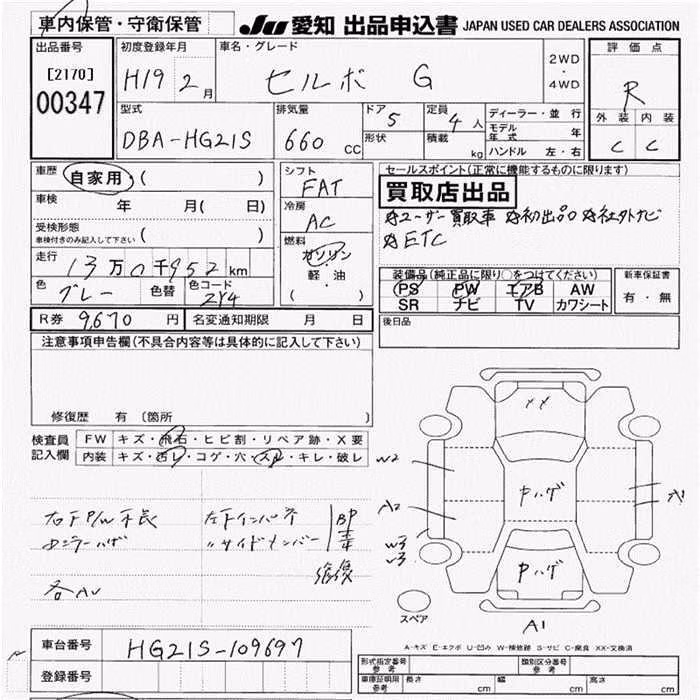 車内保管・守衛保管 JU 愛知 出品申込書 JAPAN USED CAR DEALERS ASSOCIATION
出品番号 初度登録年月 車名・グレード 評価点
[2170] H19 2月 セルボ G 2WD・4WD R
00347
型式 排気量 ドア 定員 ディーラー・並行 外装 内装
DBA-HG21S 660cc 5 4人 モデル年式 年 C C
形状 積載 kg ハンドル 左・右
車歴 自家用・( ) シフト FAT セールスポイント(正常に機能するものに限ります)
車検 年 月( 日) 冷房 AC 買取店出品
受検形態 車検付きのみ記入して下さい ( ) ☆ユーザー買取車 ☆初出品 ☆社外ナビ
☆ETC
走行 13万0千952km 燃料 ガソリン・軽油・( )
色 グレー 色替 色コード ZY4
装備品(純正品に限り○をつけてください) 新車保証書
PS PW エアB AW 有・無
SR ナビ TV カワシート
R券 9,670円 名変通知期限 月 日 後日品
注意事項申告欄(不具合内容等は具体的に記入して下さい)
修復歴 有 (箇所 )
検査員記入欄 FW キズ・飛石・ヒビ割・リペア跡・X要
内装 キズ・汚レ・コゲ・穴・スレ・キレ・破レ
XX
W2
右下P/W不良 左下インパネ BP
A2 中ハゲ A1
ミラーハゲ 〃サイドメンバー
修復
W3
中ハゲ
各AU
スペア A1
A-キズ E-エクボ U-凹み W-補修跡 S-サビ C-腐食 XX-交換済
車台番号 HG21S-109697
登録番号
形式指定番号 参考 類別区分番号 参考
車庫証明用 参考 長さ cm 幅 cm 高さ cm